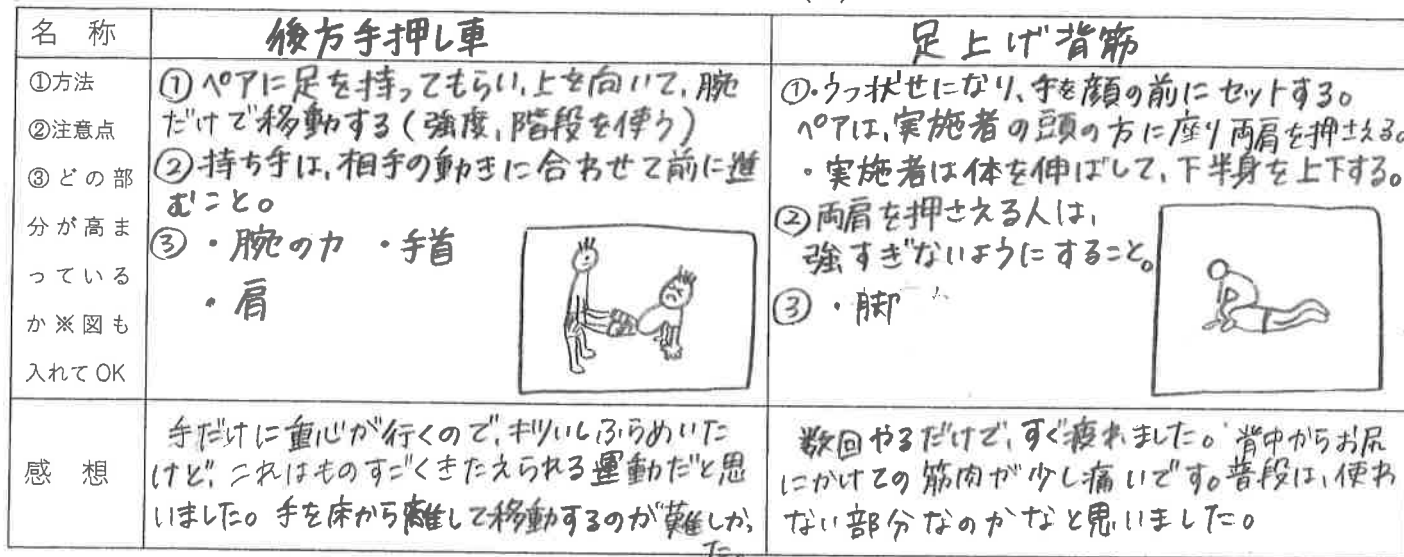 名 称
後方手押し車
足上げ背筋
①方法
②注意点
③どの部
分が高ま
っている
か※図も
入れてOK
①ペアに足を持ってもらい、上を向いて、腕
だけで移動する(強度、階段を使う)
②持ち手は、相手の動きに合わせて前に進
むこと。
③・腕の力 ・手首
・肩
①・うつ状せになり、手を顔の前にセットする。
ペアは、実施者の頭の方に座り両肩を押さえる。
・実施者は体を伸ばして、下半身を上下する。
②両肩を押さえる人は、
強すぎないようにすること。
③・脚
感 想
手だけに重心が行くので、キツいしふらめいた
けど、これはものすごくきたえられる運動だと思
いました。手を床から離して移動するのが難しかっ
た。
数回やるだけで、すぐ疲れました。背中からお尻
にかけての筋肉が少し痛いです。普段は、使わ
ない部分なのかなと思いました。